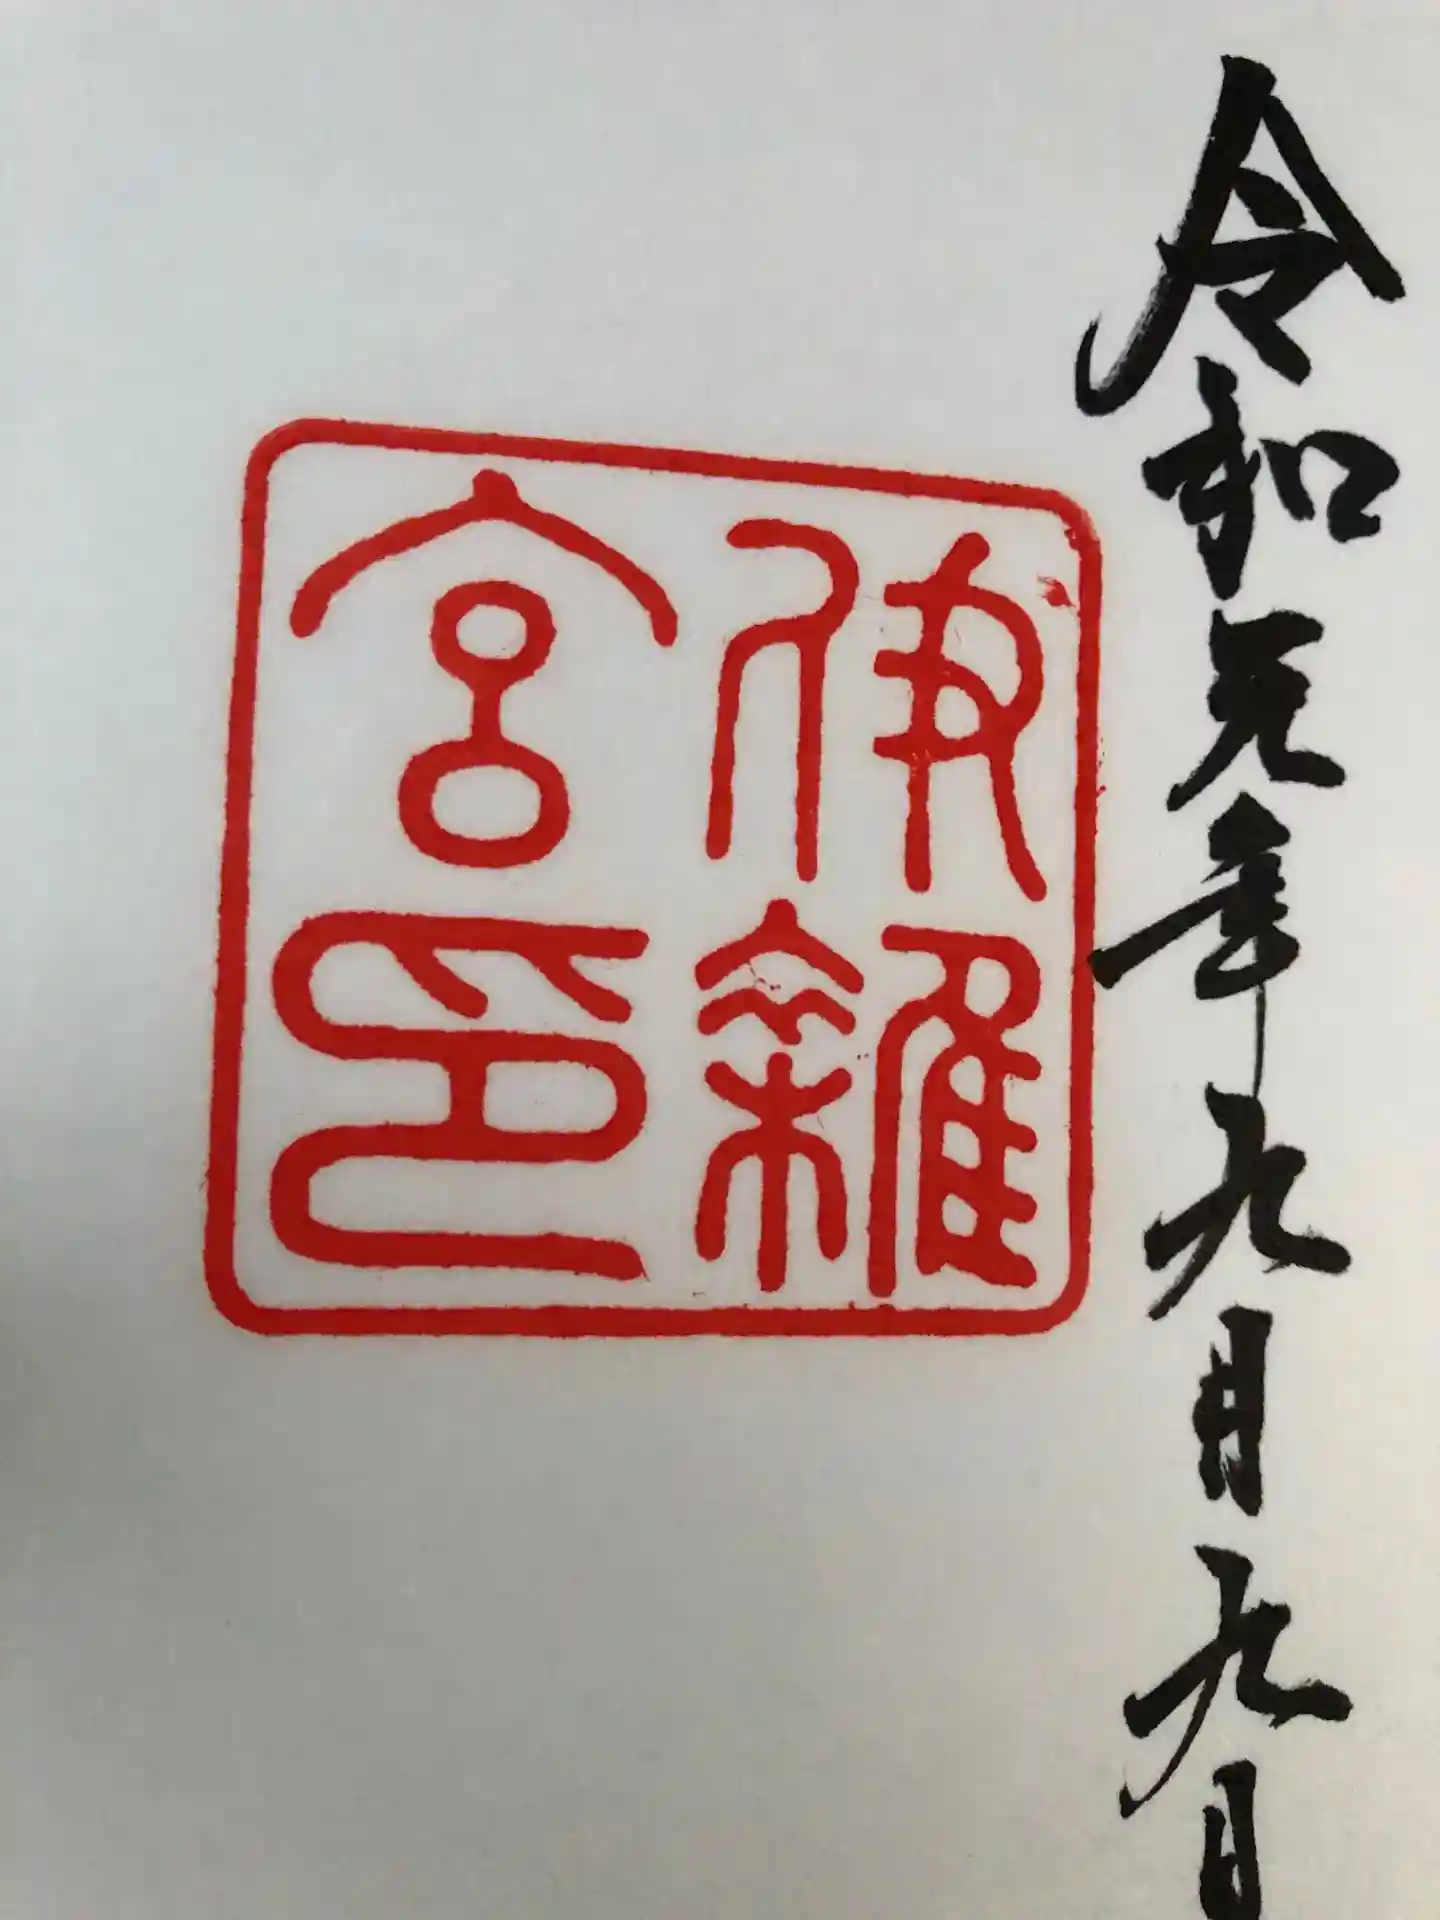 令和元年九月九日
伊雑
宮印